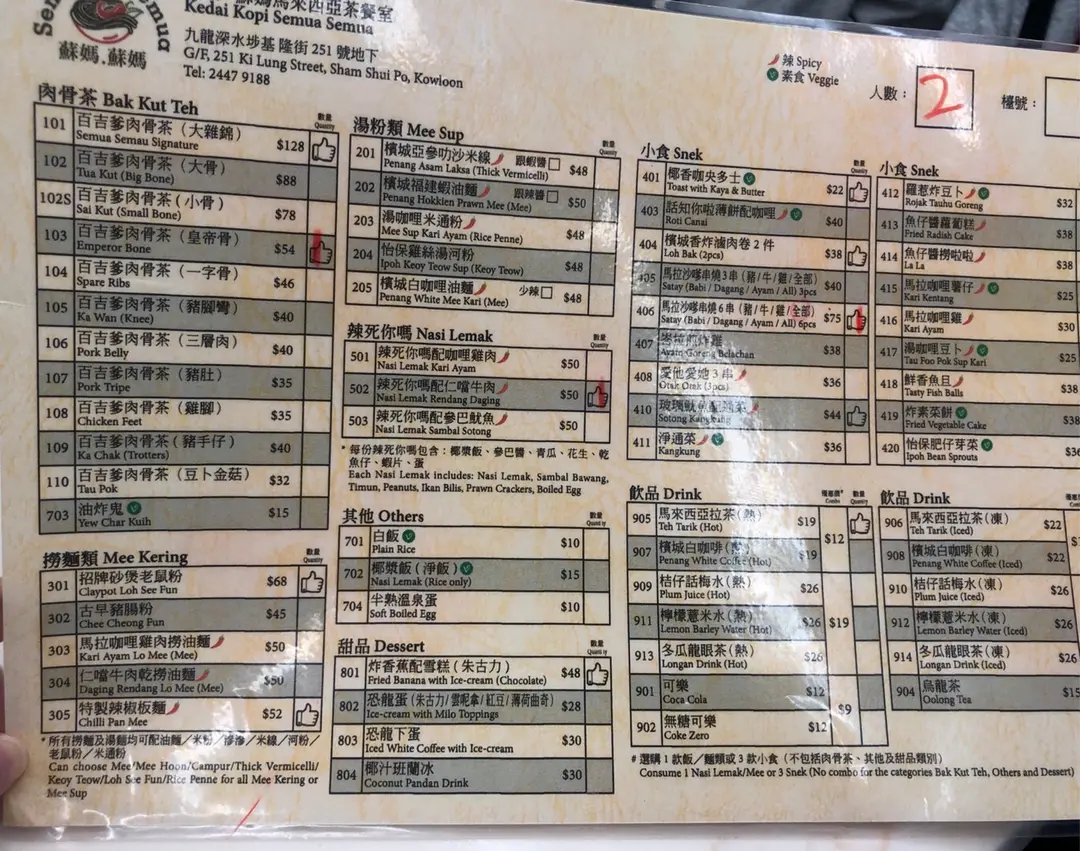 蘇媽.蘇媽
蘇媽馬來西亞茶餐室
Kedai Kopi Semua Semua
九龍深水埗基隆街 251 號地下
G/F, 251 Ki Lung Street, Sham Shui Po, Kowloon
Tel: 2447 9188
辣 Spicy
素食 Veggie
人數：
2
檯號：
肉骨茶 Bak Kut Teh
數量
Quantity
101 百吉爹肉骨茶（大雜錦） $128
Semua Semau Signature
102 百吉爹肉骨茶（大骨） $88
Tua Kut (Big Bone)
102S 百吉爹肉骨茶（小骨） $78
Sai Kut (Small Bone)
103 百吉爹肉骨茶（皇帝骨） $54
Emperor Bone
104 百吉爹肉骨茶（一字骨） $46
Spare Ribs
105 百吉爹肉骨茶（豬腳彎） $40
Ka Wan (Knee)
106 百吉爹肉骨茶（三層肉） $40
Pork Belly
107 百吉爹肉骨茶（豬肚） $35
Pork Tripe
108 百吉爹肉骨茶（雞腳） $35
Chicken Feet
109 百吉爹肉骨茶（豬手仔） $40
Ka Chak (Trotters)
110 百吉爹肉骨茶（豆卜金菇） $32
Tau Pok
703 油炸鬼 $15
Yew Char Kuih
撈麵類 Mee Kering
數量
Quantity
301 招牌砂煲老鼠粉 $68
Claypot Loh See Fun
302 古早豬腸粉 $45
Chee Cheong Fun
303 馬拉咖哩雞肉撈油麵 $50
Kari Ayam Lo Mee (Mee)
304 仁噹牛肉乾撈油麵 $50
Daging Rendang Lo Mee (Mee)
305 特製辣椒板麵 $52
Chilli Pan Mee
*所有撈麵及湯麵均可配油麵／米粉／摻摻／米線／河粉／
老鼠粉／米通粉
Can choose Mee/Mee Hoon/Campur/Thick Vermicelli/
Keoy Teow/Loh See Fun/Rice Penne for all Mee Kering or
Mee Sup
湯粉類 Mee Sup
數量
Quantity
201 檳城亞參叻沙米線 跟蝦醬 $48
Penang Asam Laksa (Thick Vermicelli)
202 檳城福建蝦油麵 跟辣醬 $50
Penang Hokkien Prawn Mee (Mee)
203 湯咖哩米通粉 $48
Mee Sup Kari Ayam (Rice Penne)
204 怡保雞絲湯河粉 $48
Ipoh Keoy Teow Sup (Keoy Teow)
205 檳城白咖哩油麵 少辣 $48
Penang White Mee Kari (Mee)
辣死你嗎 Nasi Lemak
數量
Quantity
501 辣死你嗎配咖哩雞肉 $50
Nasi Lemak Kari Ayam
502 辣死你嗎配仁噹牛肉 $50
Nasi Lemak Rendang Daging
503 辣死你嗎配參巴魷魚 $50
Nasi Lemak Sambal Sotong
*每份辣死你嗎包含：椰漿飯、參巴醬、青瓜、花生、乾
魚仔、蝦片、蛋
Each Nasi Lemak includes: Nasi Lemak, Sambal Bawang,
Timun, Peanuts, Ikan Bilis, Prawn Crackers, Boiled Egg
其他 Others
數量
Quantity
701 白飯 $10
Plain Rice
702 椰漿飯（淨飯） $15
Nasi Lemak (Rice only)
704 半熟溫泉蛋 $10
Soft Boiled Egg
甜品 Dessert
數量
Quantity
801 炸香蕉配雪糕（朱古力） $48
Fried Banana with Ice-cream (Chocolate)
802 恐龍蛋（朱古力/雲呢拿/紅豆/薄荷曲奇） $28
Ice-cream with Milo Toppings
803 恐龍下蛋 $30
Iced White Coffee with Ice-cream
804 椰汁班蘭冰 $30
Coconut Pandan Drink
小食 Snek
數量
Quantity
401 椰香咖央多士 $22
Toast with Kaya & Butter
403 話知你啦薄餅配咖哩 $40
Roti Canai
404 檳城香炸滷肉卷 2 件 $38
Loh Bak (2pcs)
405 馬拉沙嗲串燒 3 串（豬/牛/雞/全部） $40
Satay (Babi / Dagang / Ayam / All) 3pcs
406 馬拉沙嗲串燒 6 串（豬/牛/雞/全部） $75
Satay (Babi / Dagang / Ayam / All) 6pcs
407 峇拉煎炸雞 $38
Ayam Goreng Belachan
408 愛他愛她 3 串 $36
Otak Otak (3pcs)
410 玻璃魷魚配通菜 $44
Sotong Kangkung
411 淨通菜 $36
Kangkung
小食 Snek
412 羅惹炸豆卜 $32
Rojak Tauhu Goreng
413 魚仔醬蘿蔔糕 $38
Fried Radish Cake
414 魚仔醬撈啦啦 $38
La La
415 馬拉咖哩薯仔 $25
Kari Kentang
416 馬拉咖哩雞 $30
Kari Ayam
417 湯咖哩豆卜 $25
Tau Foo Pok Sup Kari
418 鮮香魚旦 $38
Tasty Fish Balls
419 炸素菜餅 $38
Fried Vegetable Cake
420 怡保肥仔芽菜 $36
Ipoh Bean Sprouts
飲品 Drink
優惠價#
Combo
數量
Quantity
905 馬來西亞拉茶（熱） $19
Teh Tarik (Hot)
$12
907 檳城白咖啡（熱） $19
Penang White Coffee (Hot)
909 桔仔話梅水（熱） $26
Plum Juice (Hot)
911 檸檬薏米水（熱） $26
Lemon Barley Water (Hot)
$19
913 冬瓜龍眼茶（熱） $26
Longan Drink (Hot)
901 可樂 $12
Coca Cola
$9
902 無糖可樂 $12
Coke Zero
飲品 Drink
906 馬來西亞拉茶（凍） $22
Teh Tarik (Iced)
908 檳城白咖啡（凍） $22
Penang White Coffee (Iced)
910 桔仔話梅水（凍） $26
Plum Juice (Iced)
912 檸檬薏米水（凍） $26
Lemon Barley Water (Iced)
914 冬瓜龍眼茶（凍） $26
Longan Drink (Iced)
904 烏龍茶 $15
Oolong Tea
# 選購 1 款飯／麵類或 3 款小食（不包括肉骨茶、其他及甜品類別）
Consume 1 Nasi Lemak/Mee or 3 Snek (No combo for the categories Bak Kut Teh, Others and Dessert)